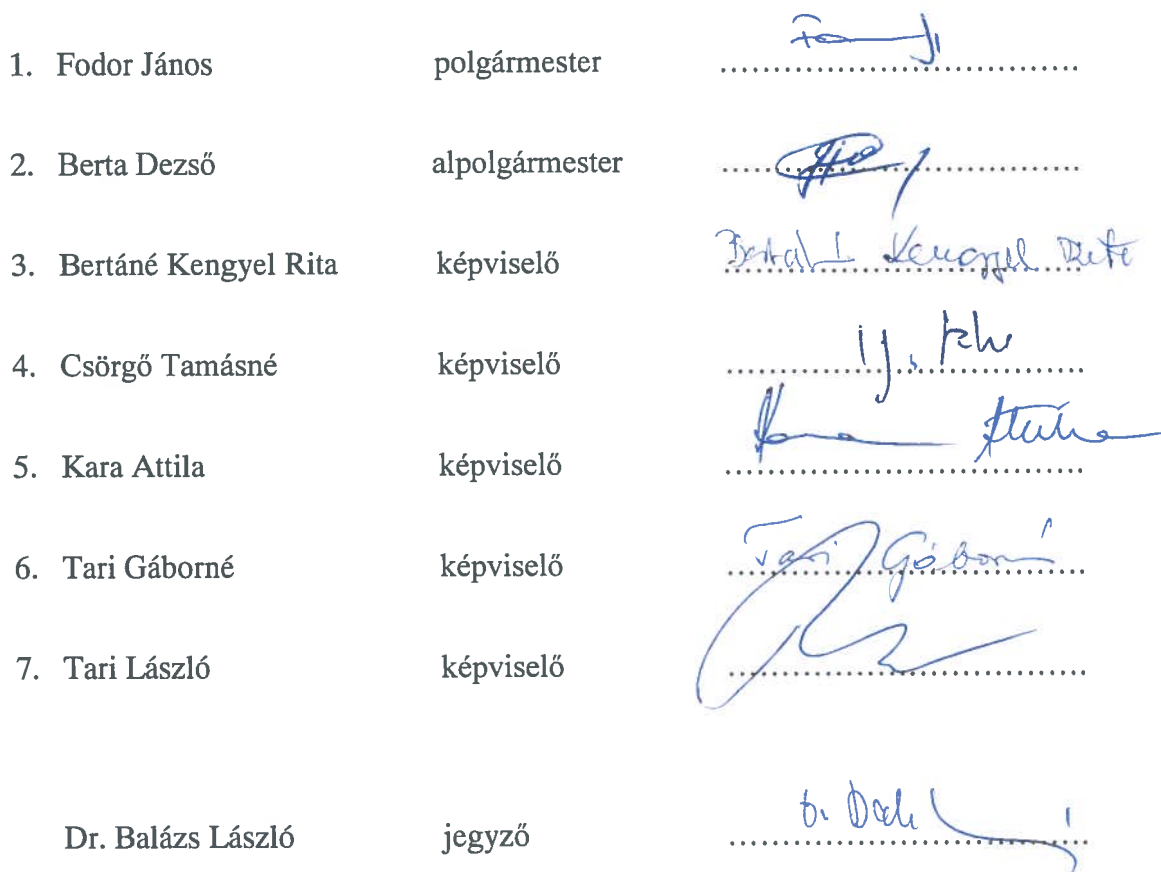 1. Fodor János polgármester
2. Berta Dezső alpolgármester
3. Bertáné Kengyel Rita képviselő Kengyel Rita
4. Csörgő Tamásné képviselő
5. Kara Attila képviselő Attila
6. Tari Gáborné képviselő Tari Gáborné
7. Tari László képviselő
Dr. Balázs László jegyző